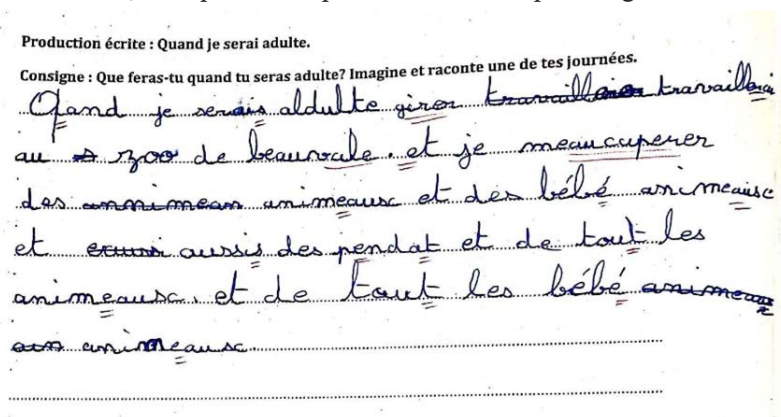 Production écrite : Quand je serai adulte.
Consigne : Que feras-tu quand tu seras adulte? Imagine et raconte une de tes journées.
Qand je serais aldulte girer travaillerai
au zoo de beauvale. et je meaucuperer
des animeaux et des bébé animeaux
et aussis des pendat et de tout les
animeaux. et de tout les bébé
animeaux